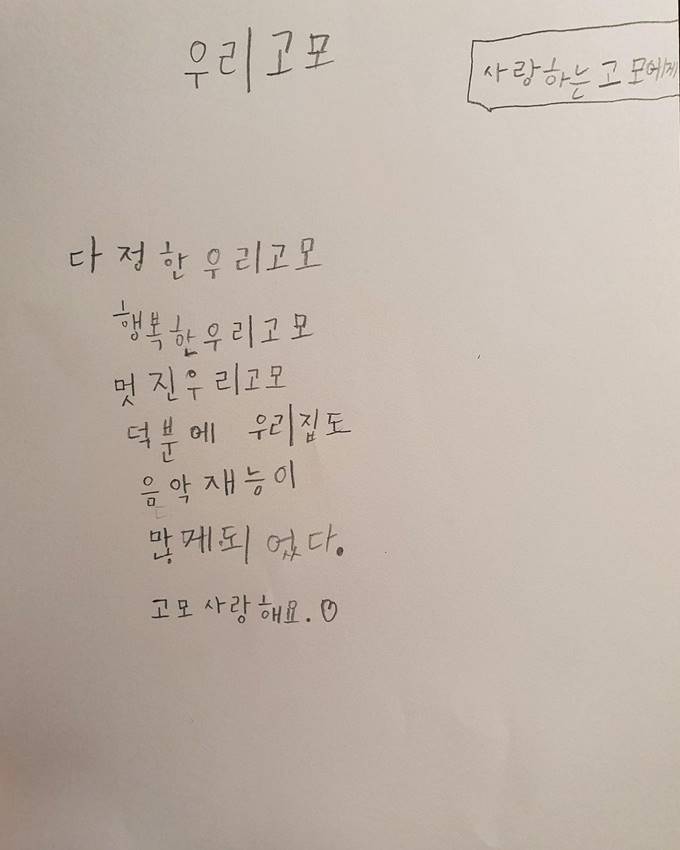 우리고모
사랑하는 고모에게
다정한우리고모
행복한우리고모
멋진우리고모
덕분에 우리집도
음악재능이
많게되었다.
고모사랑해요.♡